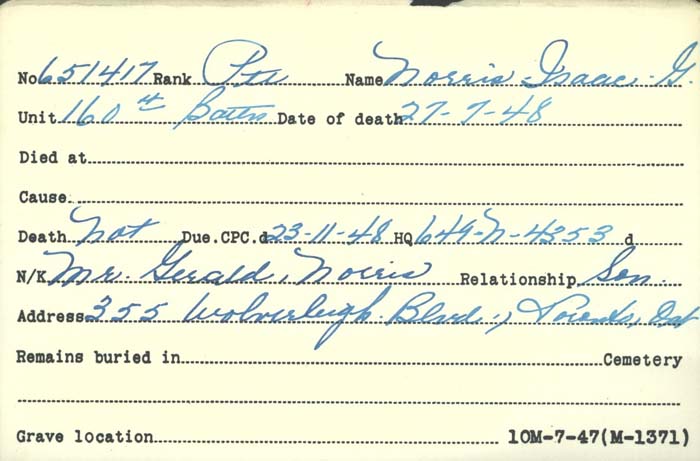 No 651417 Rank Pte Name Norris Isaac G.
Unit 160th Battn Date of death 27-7-48
Died at
Cause
Death Not Due.CPC.d 23-11-48 HQ 649-N-4353 d
N/K Mr. Gerald Norris Relationship Son.
Address 355 Wolverleigh Blvd., Toronto, Ont
Remains buried in Cemetery
Grave location 10M-7-47(M-1371)